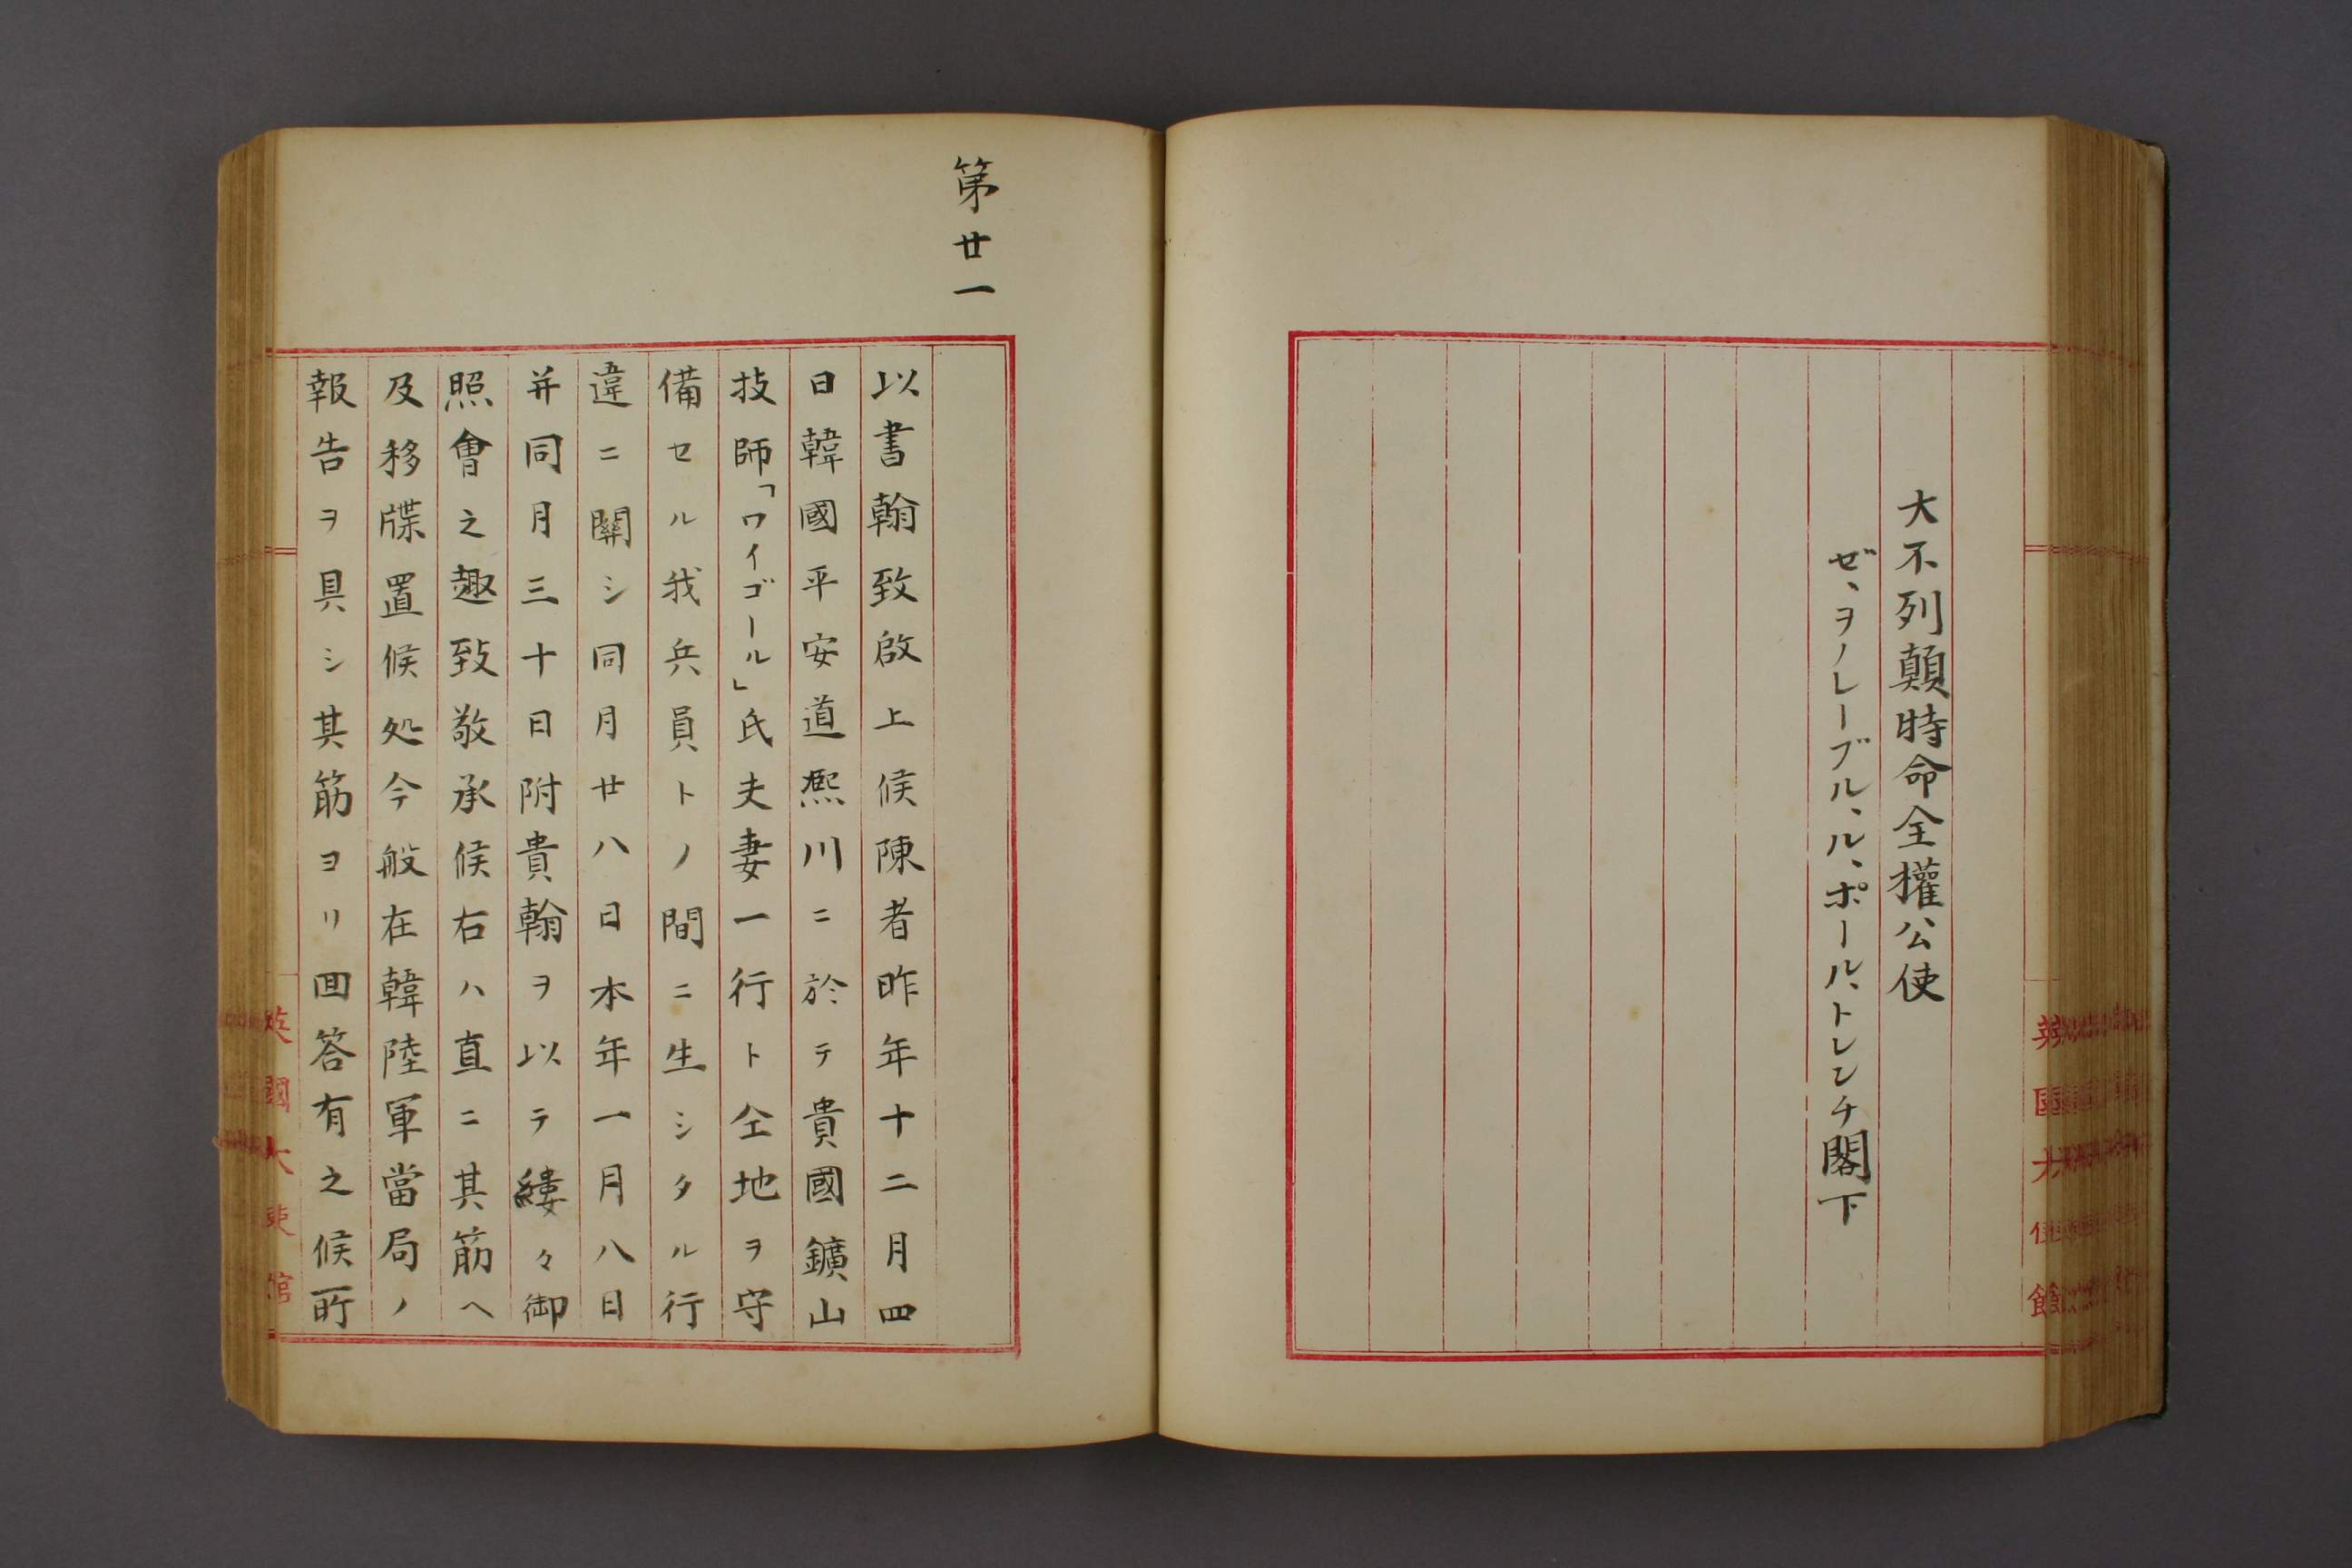 大不列顛時命全權公使
ゼ、ヲノレーブル、ル、ポール、トレンチ閣下
英國大使館
第廿一
以書翰致啟上候陳者昨年十二月四
日韓國平安道熙川ニ於テ貴國鑛山
技師「ワイゴール」氏夫妻一行ト仝地ヲ守
備セル我兵員トノ間ニ生シタル行
違ニ關シ同月廿八日本年一月八日
并同月三十日附貴翰ヲ以テ縷々御
照會之趣致敬承候右ハ直ニ其筋ヘ
及移牒置候処今般在韓陸軍當局ノ
報告ヲ具シ其筋ヨリ回答有之候所
英國大使館